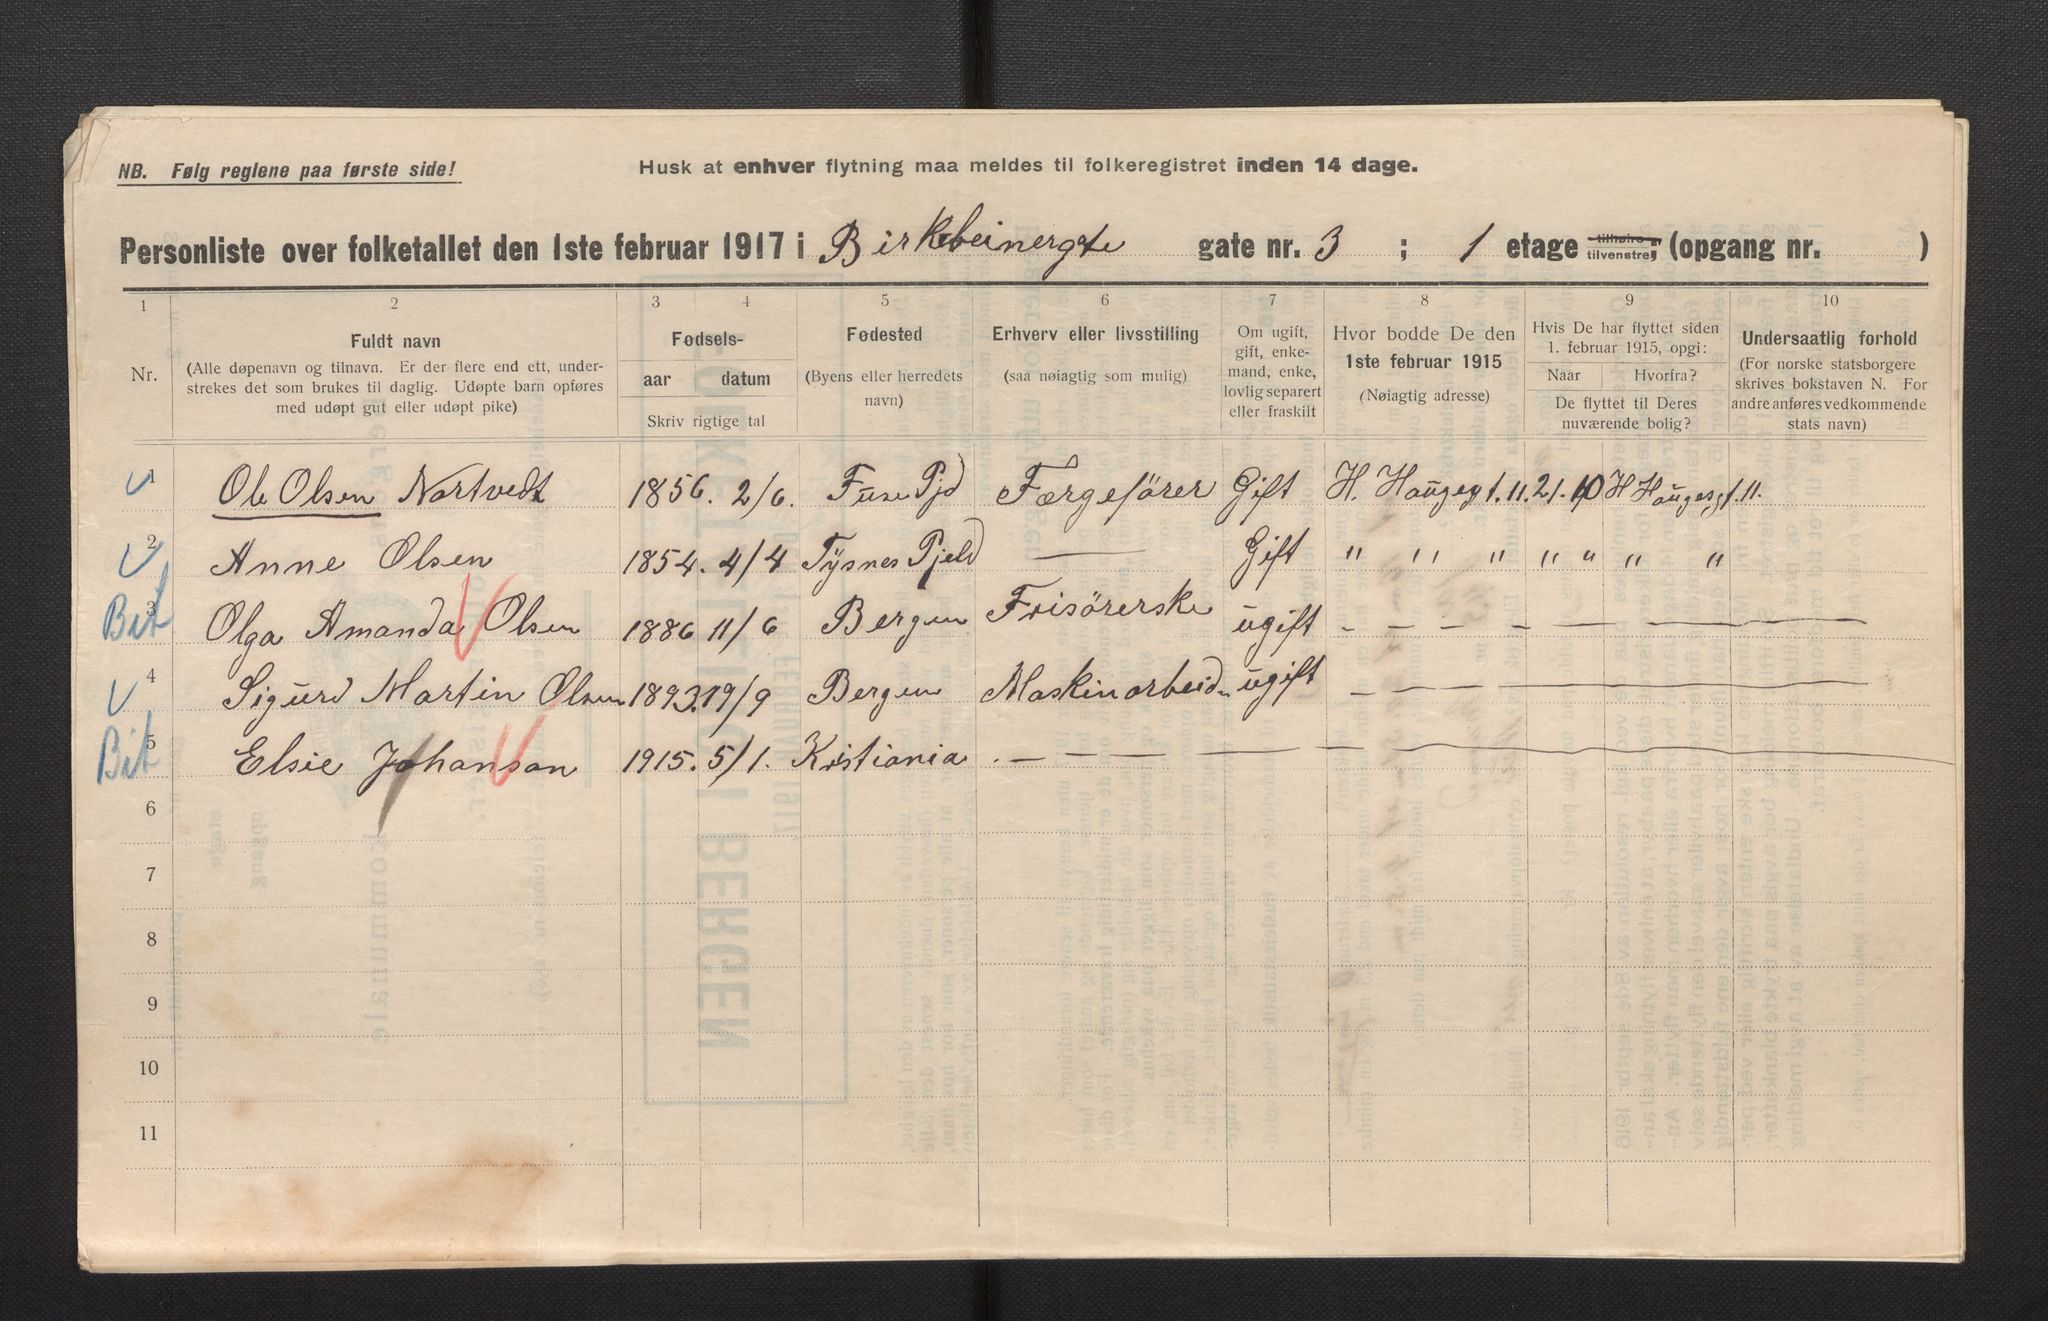 NB. Følg reglene paa første side!
Husk at enhver flytning maa meldes til folkeregistret inden 14 dage.
Personliste over folketallet den 1ste februar 1917 i Birkebeinergte gate nr. 3 ; 1 etage tilhøire, tilvenstre, (opgang nr. )
1 2 3 4 5 6 7 8 9 10
Nr.
Fuldt navn
(Alle døpenavn og tilnavn. Er der flere end ett, under-
strekes det som brukes til daglig. Udøpte barn opføres
med udøpt gut eller udøpt pike)
Fødsels-
aar datum
Skriv rigtige tal
Fødested
(Byens eller herredets
navn)
Erhverv eller livsstilling
(saa nøiagtig som mulig)
Om ugift,
gift, enke-
mand, enke,
lovlig separert
eller fraskilt
Hvor bodde De den
1ste februar 1915
(Nøiagtig adresse)
Hvis De har flyttet siden
1. februar 1915, opgi:
Naar Hvorfra?
De flyttet til Deres
nuværende bolig?
Undersaatlig forhold
(For norske statsborgere
skrives bokstaven N. For
andre anføres vedkommende
stats navn)
V 1 Ole Olsen Nortvedt 1856. 2/6. Fuse Pjd Færgefører Gift H. Haugesgt. 11. 21. 10 H Haugesgt. 11.
V 2 Anne Olsen 1854. 4/4 Tysnes Pjeld — Gift " " " " " " "
Bit 3 Olga Amanda V Olsen 1886 11/6 Bergen Frisørerske ugift — — — — — — —
V 4 Sigurd Martin Olsen 1893. 19/9 Bergen Maskinarbeid. ugift — — — — — — —
Bit 5 Elsie Johanson V 1915. 5/1. Kristiania . — — — — — — — —
6
7
8
9
10
11